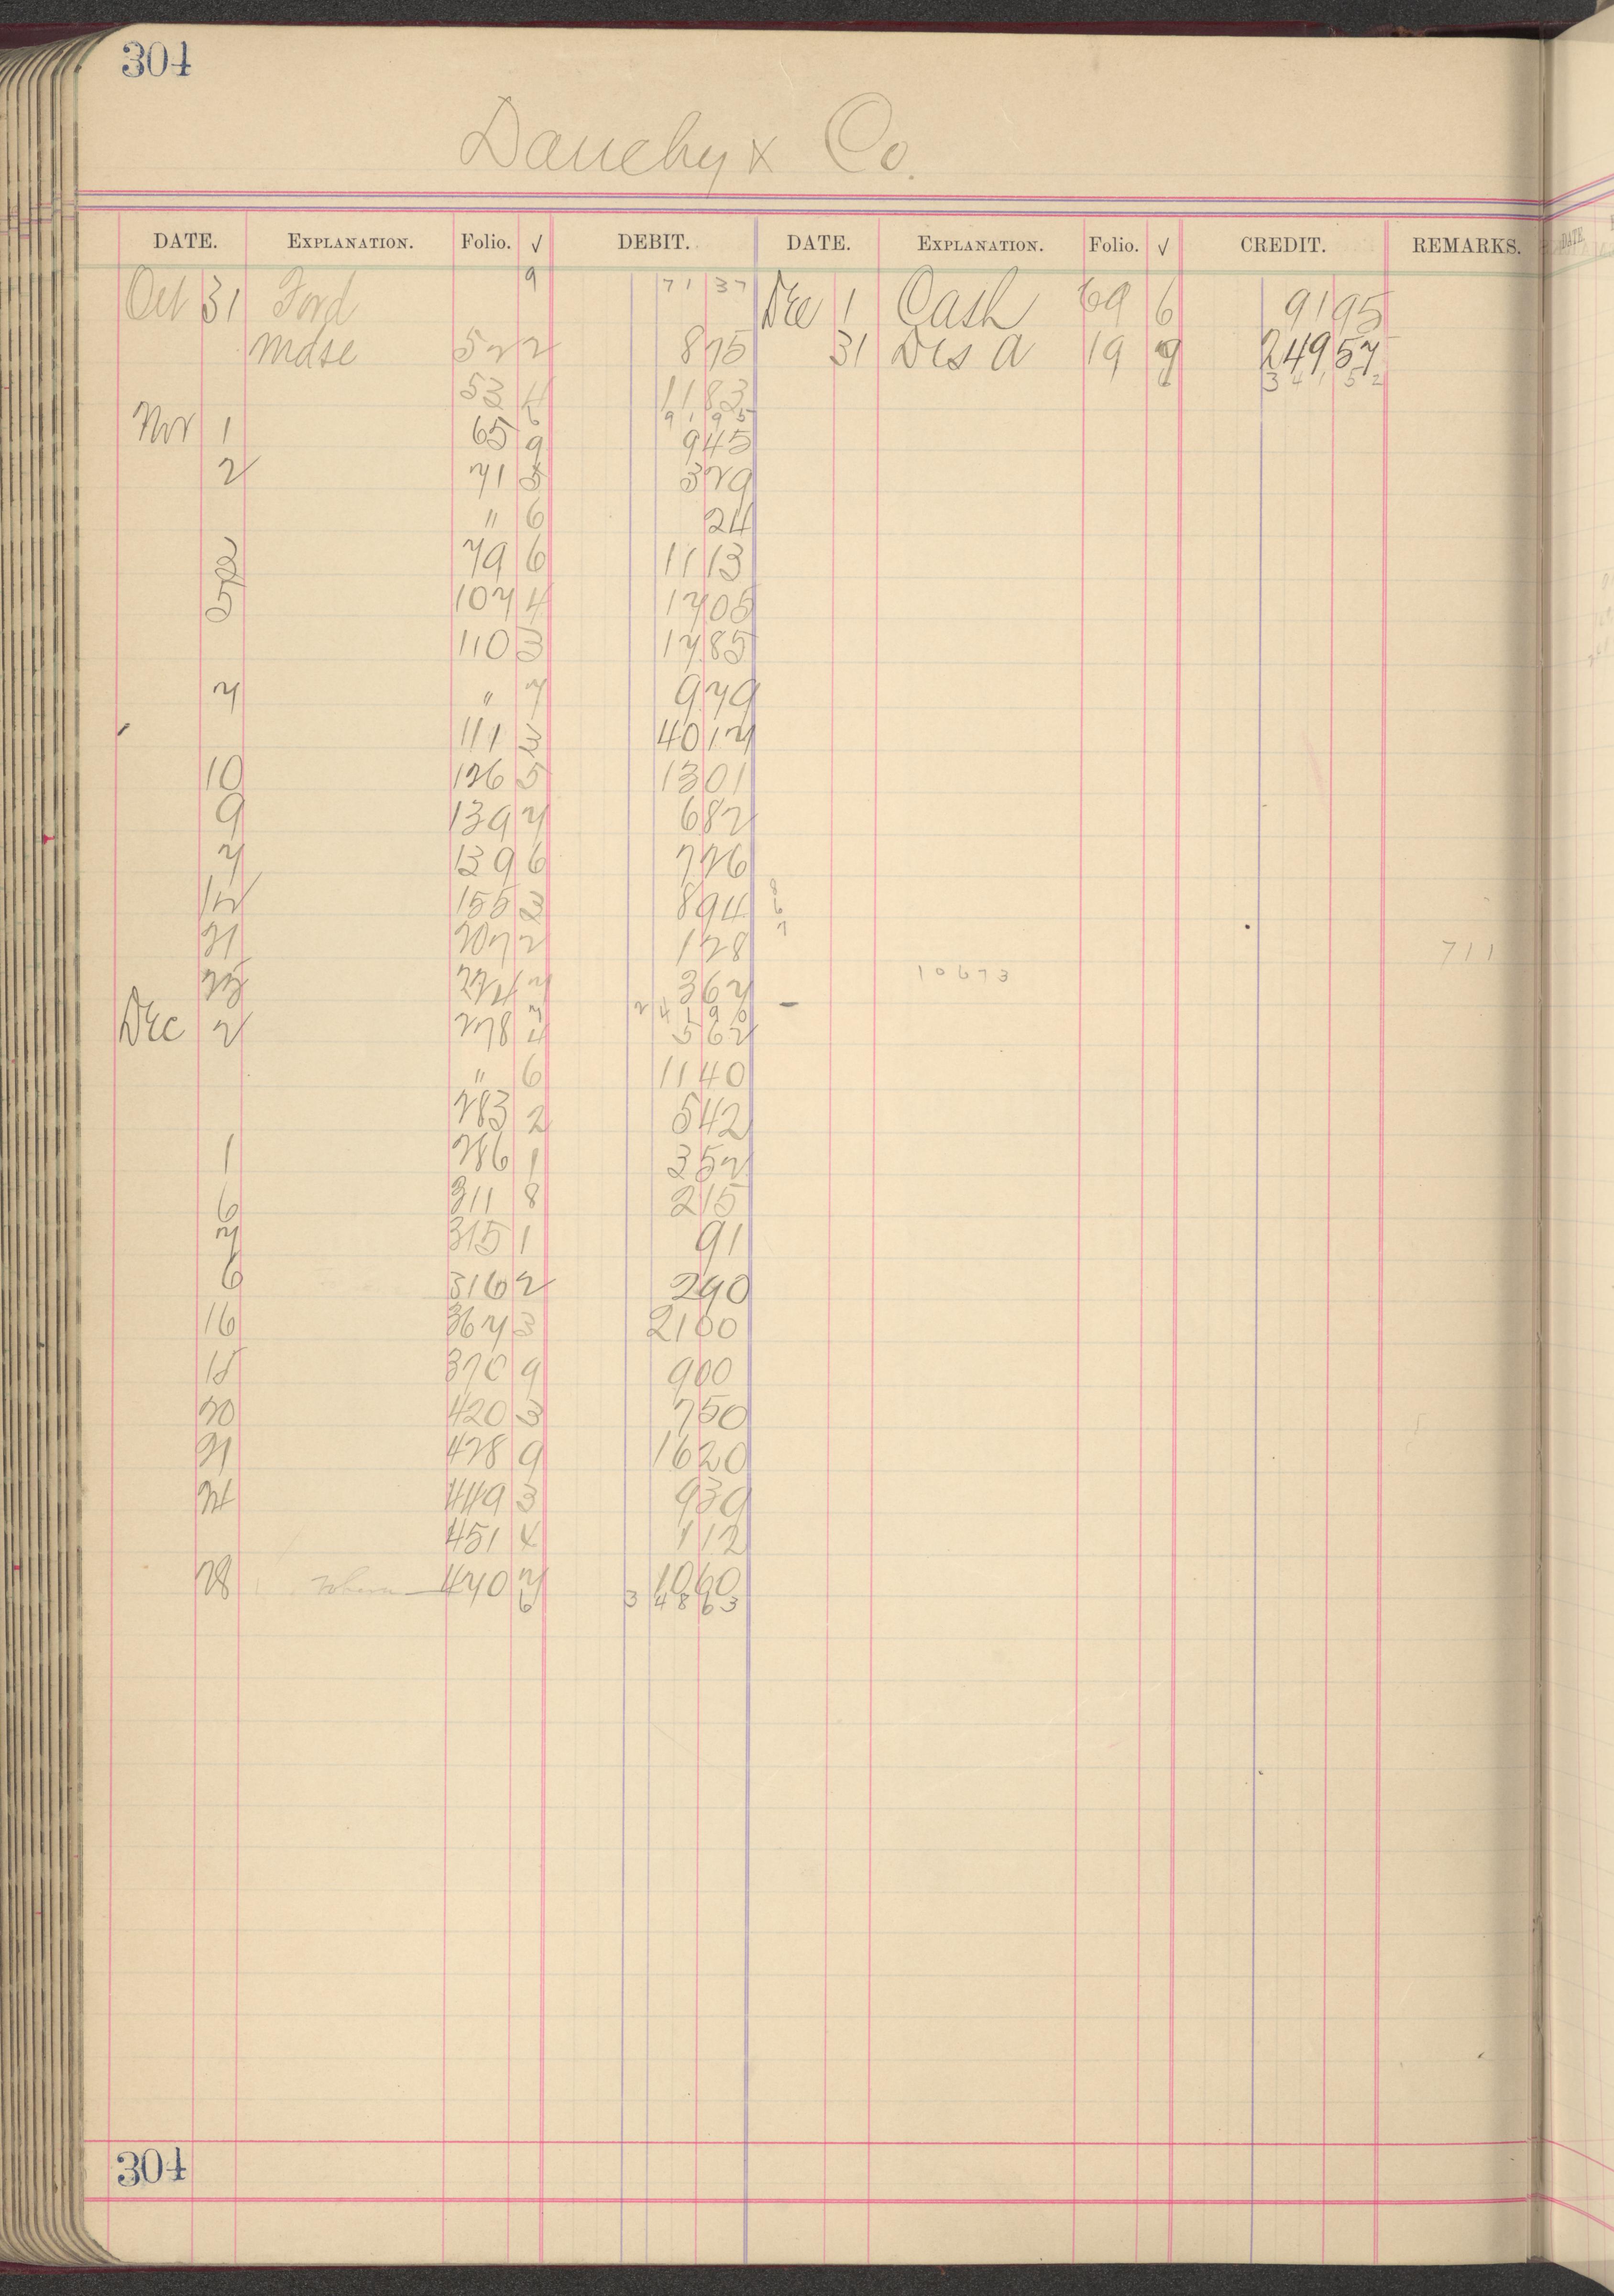 304
Dauchy & Co.
DATE. EXPLANATION. Folio. √ DEBIT. DATE. EXPLANATION. Folio. √ CREDIT. REMARKS.
Oct 31 Ford 9 71 37 Dec 1 Cash 69 6 91 95
Mdse 52 2 8 75 31 Dis A 19 9 249 57
53 4 11 83 3 4 1 5 2
6 9 1 9 5
Nov 1 65 9 9 45
2 71 5 3 29
" 6 24
79 6 11 13
5 107 4 17 05
110 3 17 85
7 " 7 9 79
111 3 40 17
10 126 5 13 01
9 139 7 6 82
7 139 6 7 26
12 155 3 8 94
21 207 2 1 28 711
23 224 7 3 67 10673
2 4 1 9 0
Dec 2 278 4 5 62
" 6 11 40
283 2 5 42
1 286 1 3 52
6 311 8 2 15
7 315 1 91
6 316 2 2 90
16 367 3 21 00
18 370 9 9 00
20 420 3 7 50
21 428 9 16 20
24 449 3 9 39
451 4 1 12
28 470 7 10 60
6 3 4 8 63
304